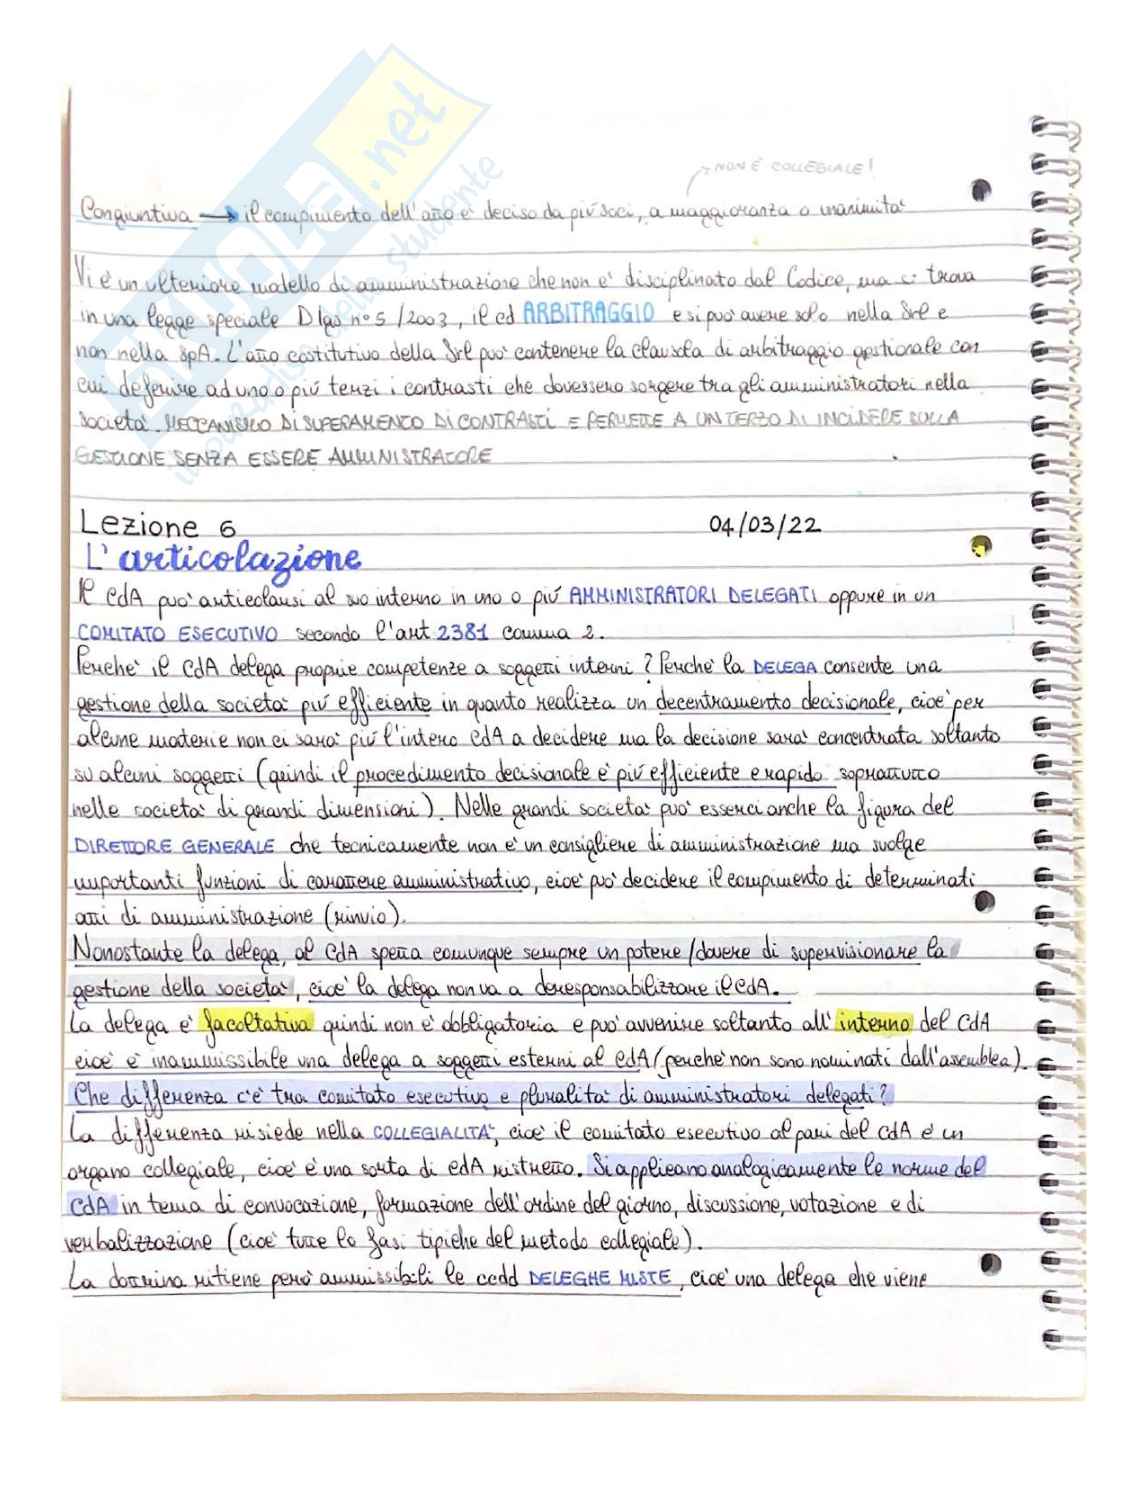 NON È COLLEGIALE!
Congiuntiva → il compimento dell'atto è deciso da più soci, a maggioranza o unanimità
Vi è un ulteriore modello di amministrazione che non è disciplinato dal Codice, ma si trova
in una legge speciale Dlgs n° 5/2003, il cd ARBITRAGGIO e si può avere solo nella Srl e
non nella SpA. L'atto costitutivo della Srl può contenere la clausola di arbitraggio gestionale con
cui deferire ad uno o più terzi i contrasti che dovessero sorgere tra gli amministratori nella
società. MECCANISMO DI SUPERAMENTO DI CONTRASTI E PERMETTE A UN TERZO DI INCIDERE SULLA
GESTIONE SENZA ESSERE AMMINISTRATORE
Lezione 6 04/03/22
L'articolazione
Il CdA può articolarsi al suo interno in uno o più AMMINISTRATORI DELEGATI oppure in un
COMITATO ESECUTIVO secondo l'art 2381 comma 2.
Perché il CdA delega proprie competenze a soggetti interni? Perché la DELEGA consente una
gestione della società più efficiente in quanto realizza un decentramento decisionale, cioè per
alcune materie non ci sarà più l'intero CdA a decidere ma la decisione sarà concentrata soltanto
su alcuni soggetti (quindi il procedimento decisionale è più efficiente e rapido soprattutto
nelle società di grandi dimensioni). Nelle grandi società può esserci anche la figura del
DIRETTORE GENERALE che tecnicamente non è un consigliere di amministrazione ma svolge
importanti funzioni di carattere amministrativo, cioè può decidere il compimento di determinati
atti di amministrazione (rinvio).
Nonostante la delega, al CdA spetta comunque sempre un potere/dovere di supervisionare la
gestione della società, cioè la delega non va a deresponsabilizzare il CdA.
La delega è facoltativa quindi non è obbligatoria e può avvenire soltanto all'interno del CdA
cioè è inammissibile una delega a soggetti esterni al CdA (perché non sono nominati dall'assemblea).
Che differenza c'è tra comitato esecutivo e pluralità di amministratori delegati?
La differenza risiede nella COLLEGIALITÀ, cioè il comitato esecutivo al pari del CdA è un
organo collegiale, cioè è una sorta di CdA ristretto. Si applicano analogicamente le norme del
CdA in tema di convocazione, formazione dell'ordine del giorno, discussione, votazione e di
verbalizzazione (cioè tutte le fasi tipiche del metodo collegiale).
La dottrina ritiene però ammissibili le ccdd DELEGHE MISTE, cioè una delega che viene